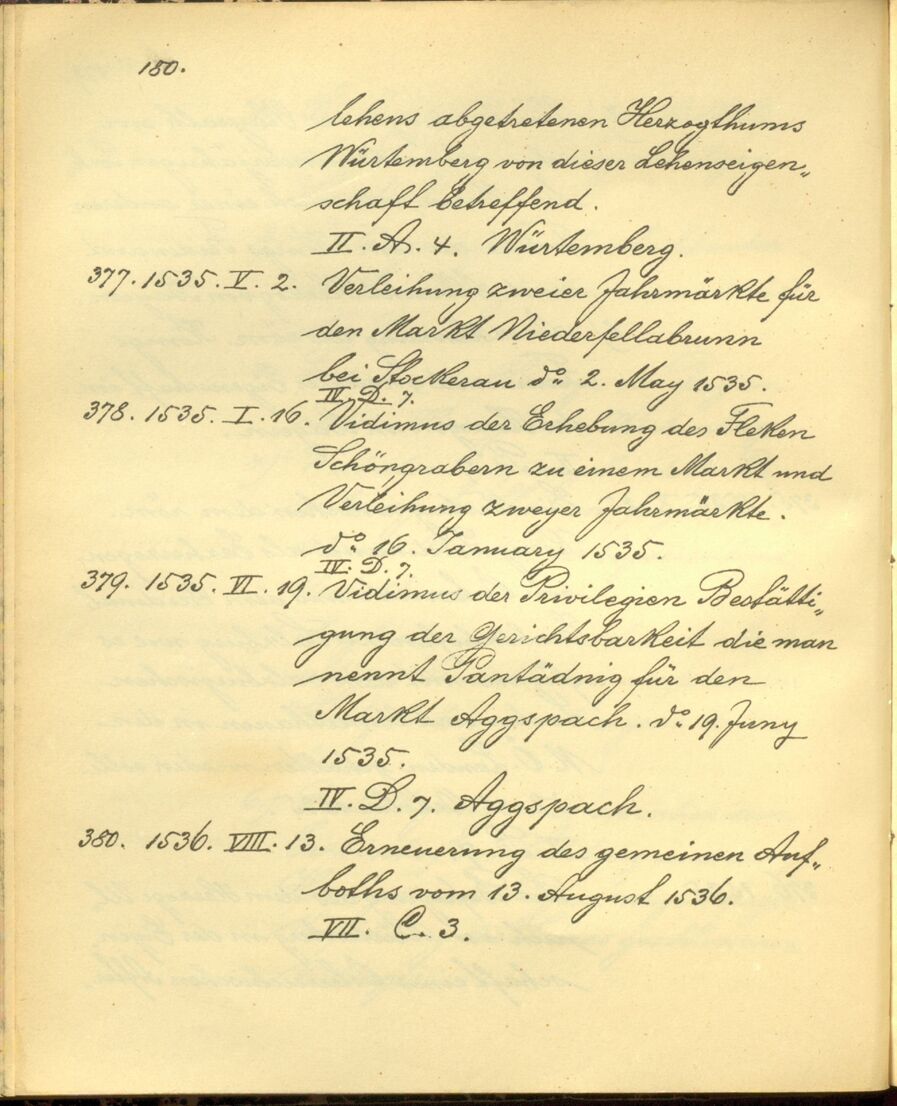 180.
lehens abgetretenen Herzogthums
Würtemberg von dieser Lehenseigen„
schaft betreffend.
II. A. 4. Würtemberg.
377. 1535. V. 2. Verleihung zweier Jahrmärkte für
den Markt Niederfellabrunn
bei Stockerau do: 2. May 1535.
IV. D. 7.
378. 1535. I. 16. Vidimus der Erhebung des Fleken
Schöngrabern zu einem Markt und
Verleihung zweyer Jahrmärkte.
do: 16. January 1535.
IV. D. 7.
379. 1535. VI. 19. Vidimus der Privilegien Bestätti„
gung der Gerichtsbarkeit die man
nennt Pantädnig für den
Markt Aggspach. do: 19. Juny
1535.
IV. D. 7. Aggspach.
380. 1536. VIII. 13. Erneuerung des gemeinen Auf„
boths vom 13. August 1536.
VII. C. 3.